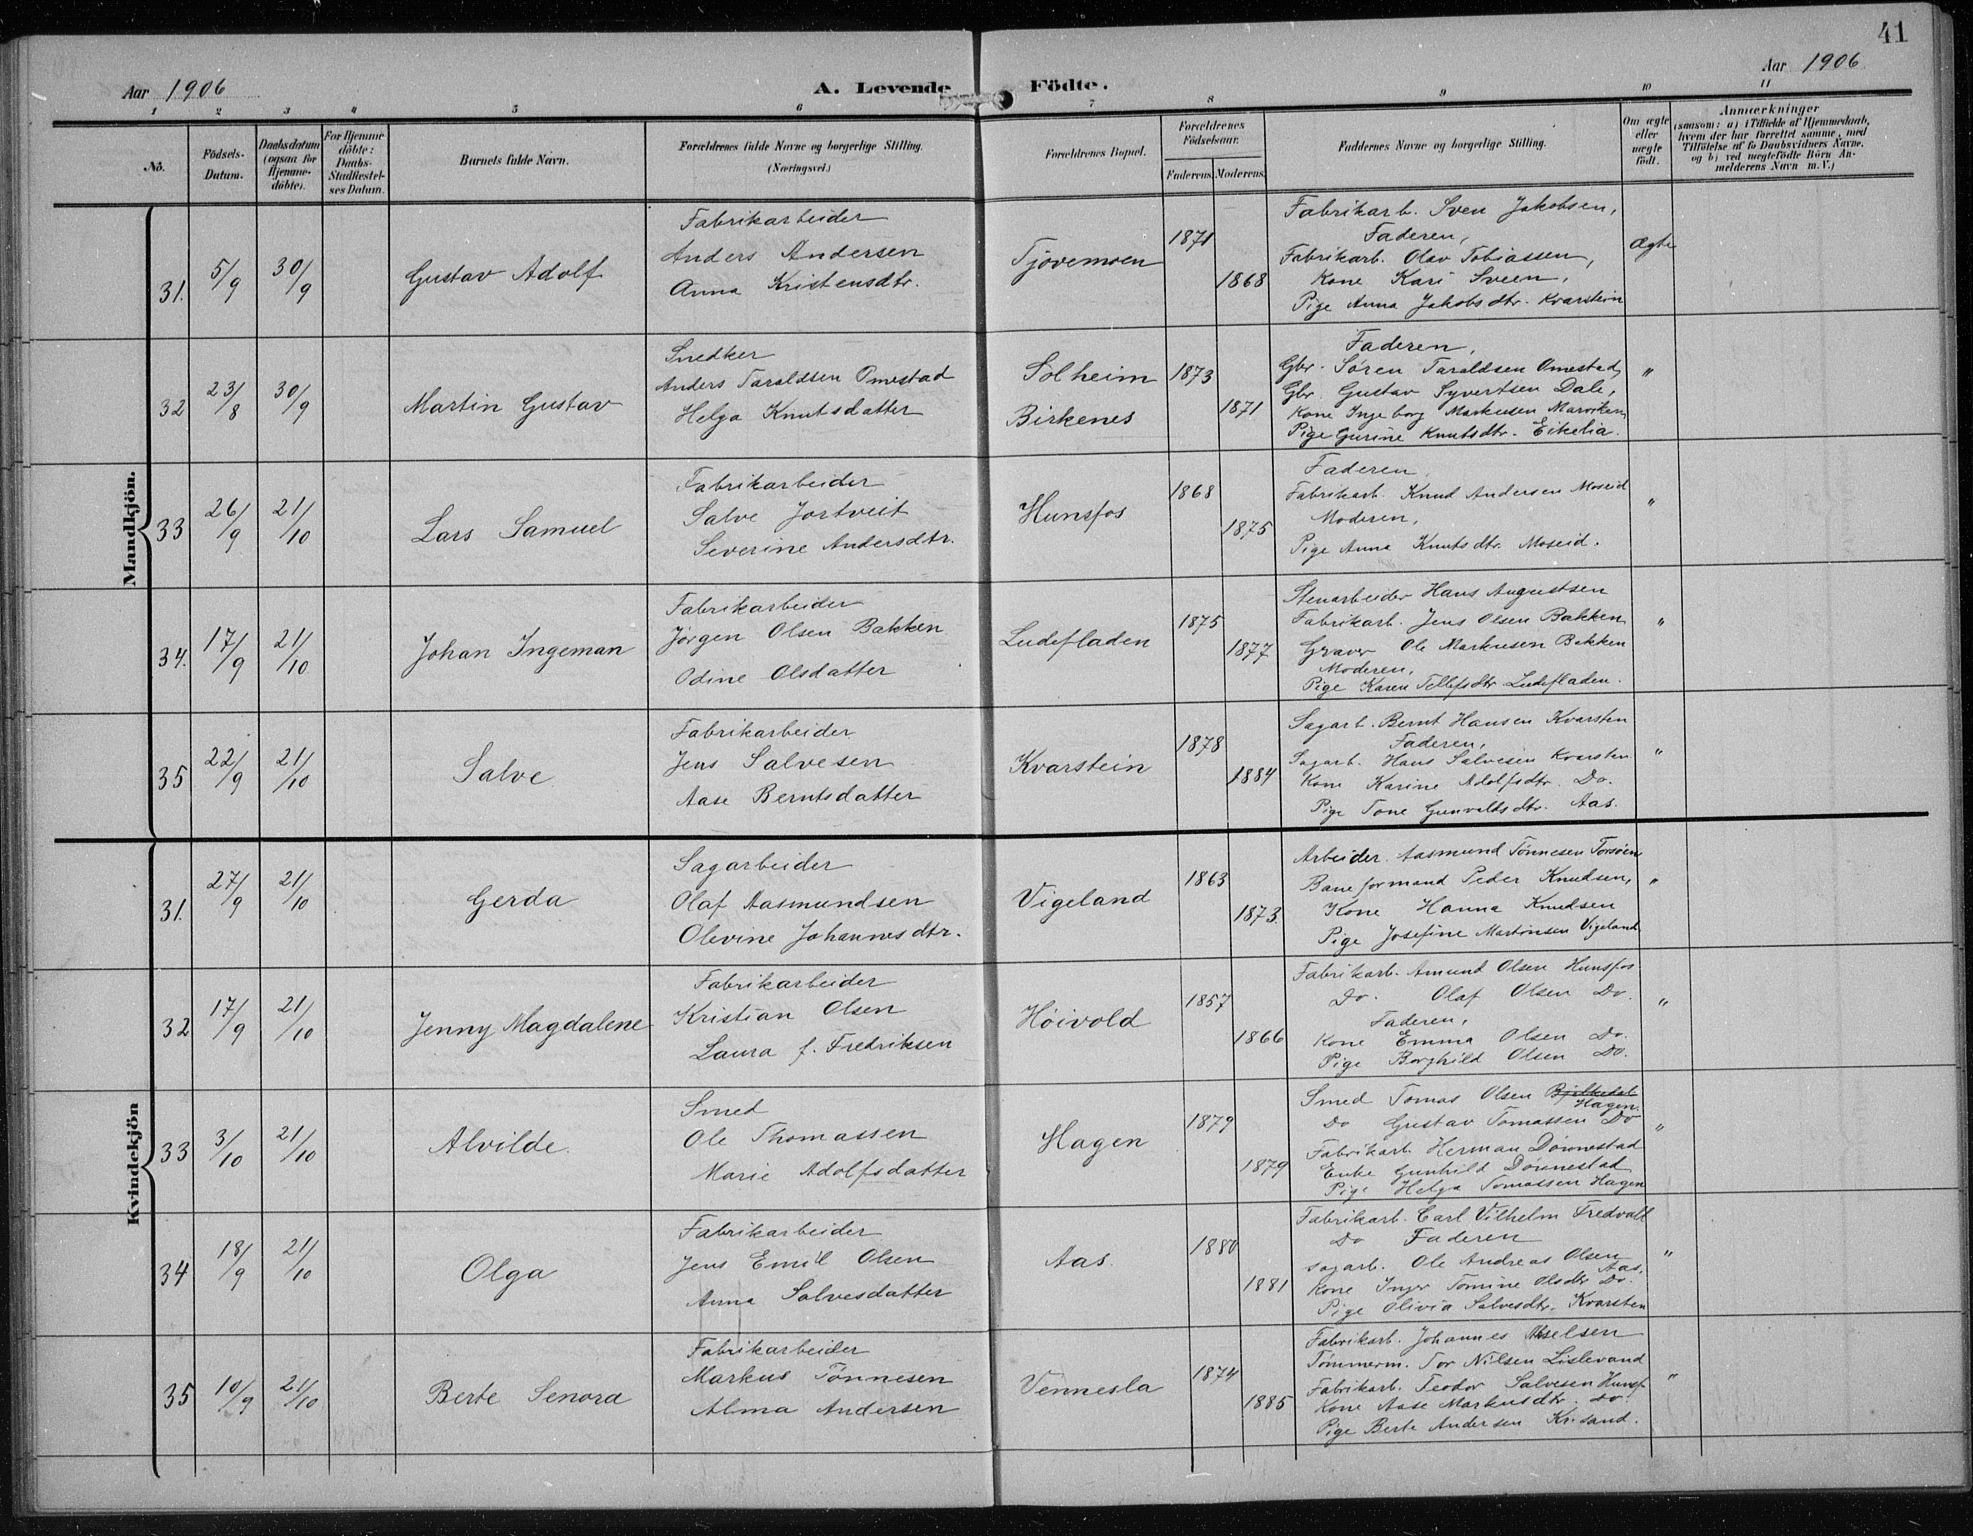 41
Aar 1906
A. Levende Födte.
Aar 1906
1 2 3 4 5 6 7 8 9 10 11
Nö.
Födsels-Datum.
Daabsdatum (ogsaa for Hjemme-döbte).
For Hjemme döbte: Daabs-Stadfæstel-ses Datum.
Barnets fulde Navn.
Forældrenes fulde Navne og borgerlige Stilling.
(Næringsvei.)
Forældrenes Bopæl.
Forældrenes Födselsaar.
Faderens. Moderens.
Faddernes Navne og borgerlige Stilling.
Om ægte eller uægte födt.
Anmærkninger
(saasom: a) i Tilfælde af Hjemmedaab,
hvem der har forrettet samme, med
Tilföielse af to Daabsvidners Navne.
og b) ved uægtefödte Börn An-
melderens Navn m. V.)
Mandkjön.
31. 5/9 30/9 Gustav Adolf
Fabrikarbeider
Anders Andersen
Anna Kristensdtr.
Tjovemoen 1871 1868
Fabrikarb. Sven Jakobsen,
Faderen,
Fabrikarb. Olav Tobiassen,
Kone Kari Sveen,
Pige Anna Jakobsdtr. Kvarstein
Ægte
32 23/8 30/9 Martin Gustav
Snedker
Anders Taraldsen Omestad
Helga Knutsdatter
Solheim
Birkenes
1873 1871
Faderen,
Gbr. Søren Taraldsen Omestad,
Gbr. Gustav Syvertsen Dale,
Kone Ingeborg Markusen
Pige Gurine Knutsdtr. Eikelia.
"
33 26/9 21/10 Lars Samuel
Fabrikarbeider
Salve Jortveit
Severine Andersdtr.
Hunsfos 1868 1875
Faderen,
Fabrikarb. Knud Andersen Moseid
Moderen,
Pige Anna Knutsdtr. Moseid.
"
34. 17/9 21/10 Johan Ingeman
Fabrikarbeider
Jørgen Olsen Bakken
Odine Olsdatter
Ludefladen 1875 1877
Stenarbeider Hans Augustsen
Fabrikarb. Jens Olsen Bakken
Graver Ole Markusen Bakken
Moderen,
Pige Karen Tellefsdtr. Ludefladen.
"
35 22/9 21/10 Salve
Fabrikarbeider
Jens Salvesen
Aase Berntsdatter
Kvarstein 1878 1884
Sagarb. Bernt Hansen Kvarsten
Faderen,
Sagarb. Hans Salvesen Kvarsten
Kone Karine Adolfsdtr. Do.
Pige Tone Gunvaldsdtr. Aas.
"
Kvindekjön
31. 27/9 21/10 Gerda
Sagarbeider
Olaf Aasmundsen
Olevine Johannesdtr.
Vigeland 1863 1873.
Arbeider Aasmund Tönnesen Torsöen
Baneformand Peder Knudsen,
Kone Hanna Knudsen
Pige Josefine Martinsen Vigeland
"
32 17/9 21/10 Jenny Magdalene
Fabrikarbeider
Kristian Olsen
Laura f. Fredriksen
Höivold 1857 1866
Fabrikarb. Amund Olsen Hunsfos
Do. Olaf Olsen Do.
Faderen,
Kone Emma Olsen Do.
Pige Borghild Olsen Do.
"
33 3/10 21/10 Alvilde.
Smed
Ole Thomassen
Marie Adolfsdatter
Hagen 1879 1879
Smed Tomas Olsen
Hagen.
Do Gustav Tomassen Do
Fabrikarb. Herman Dönnestad
Enke Gunhild Dönnestad
Pige Helga Tomassen Hagen
"
34 18/9 21/10 Olga
Fabrikarbeider
Jens Emil Olsen
Anna Salvesdatter
Aas. 1880 1881
Fabrikarb. Carl Vilhelm Fredvall
Do Faderen
Sagarb. Ole Andreas Olsen
Aas.
Kone Inger Tomine Olsdtr Do.
Pige Olivia Salvesdtr. Kvarsten
"
35 10/9 21/10 Berte Senora
Fabrikarbeider
Markus Tönnesen
Alma Andersen
Vennesla 1874 1885
Fabrikarb. Johannes
Tömmerm. Tor Nilsen Lislevand
Fabrikarb. Teodor Salvesen Hunsf.
Kone Aase Markusdtr. Do.
Pige Berte Andersen Kr.sand.
"